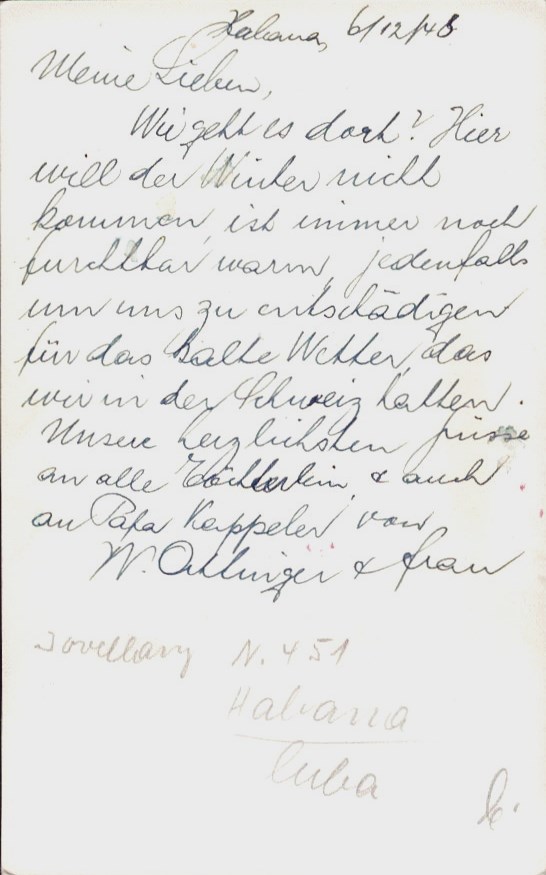 Habana, 6/12/48
Meine Lieben,
Wie geht es dort? Hier
will der Winter nicht
kommen, ist immer noch
furchtbar warm, jedenfalls
um uns zu entschädigen
für das kalte Wetter, das
wir in der Schweiz hatten.
Unsere herzlichsten Grüsse
an alle Töchterlein & auch
an Papa Kappeler von
W. & Frau
N. 451
Habana
Cuba